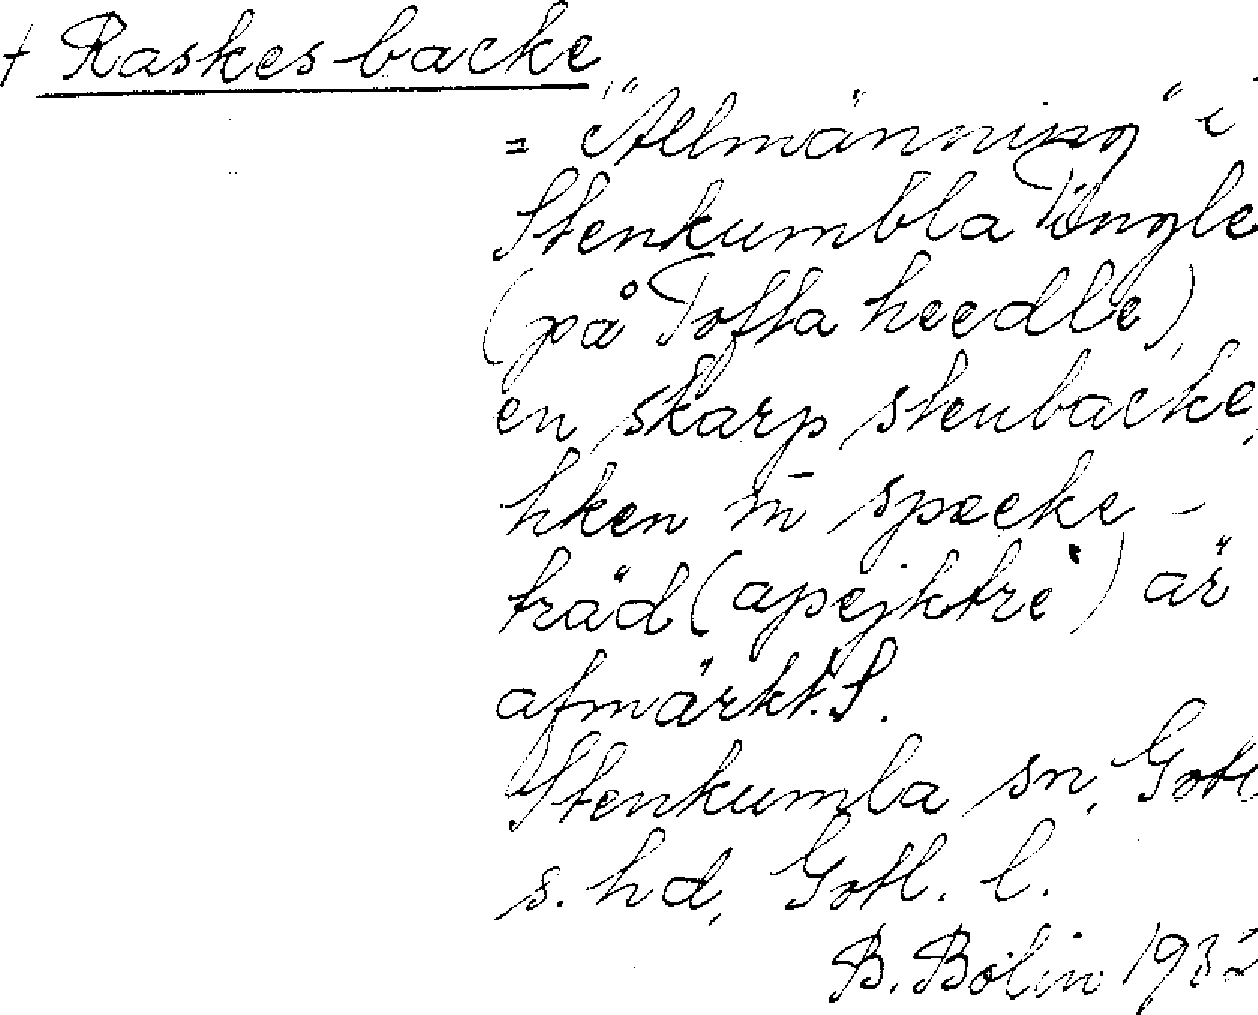 † Raskes backe
= "Allmänning" i
Stenkumbla Tingle
(på Tofta heedle),
en skarp stenbacke,
hken m̄ specke-
träd (apejktre) är
afmärkt. S.
Stenkumla sn, Gotl.
s. hd, Gotl. l.
B. Bolin 1932